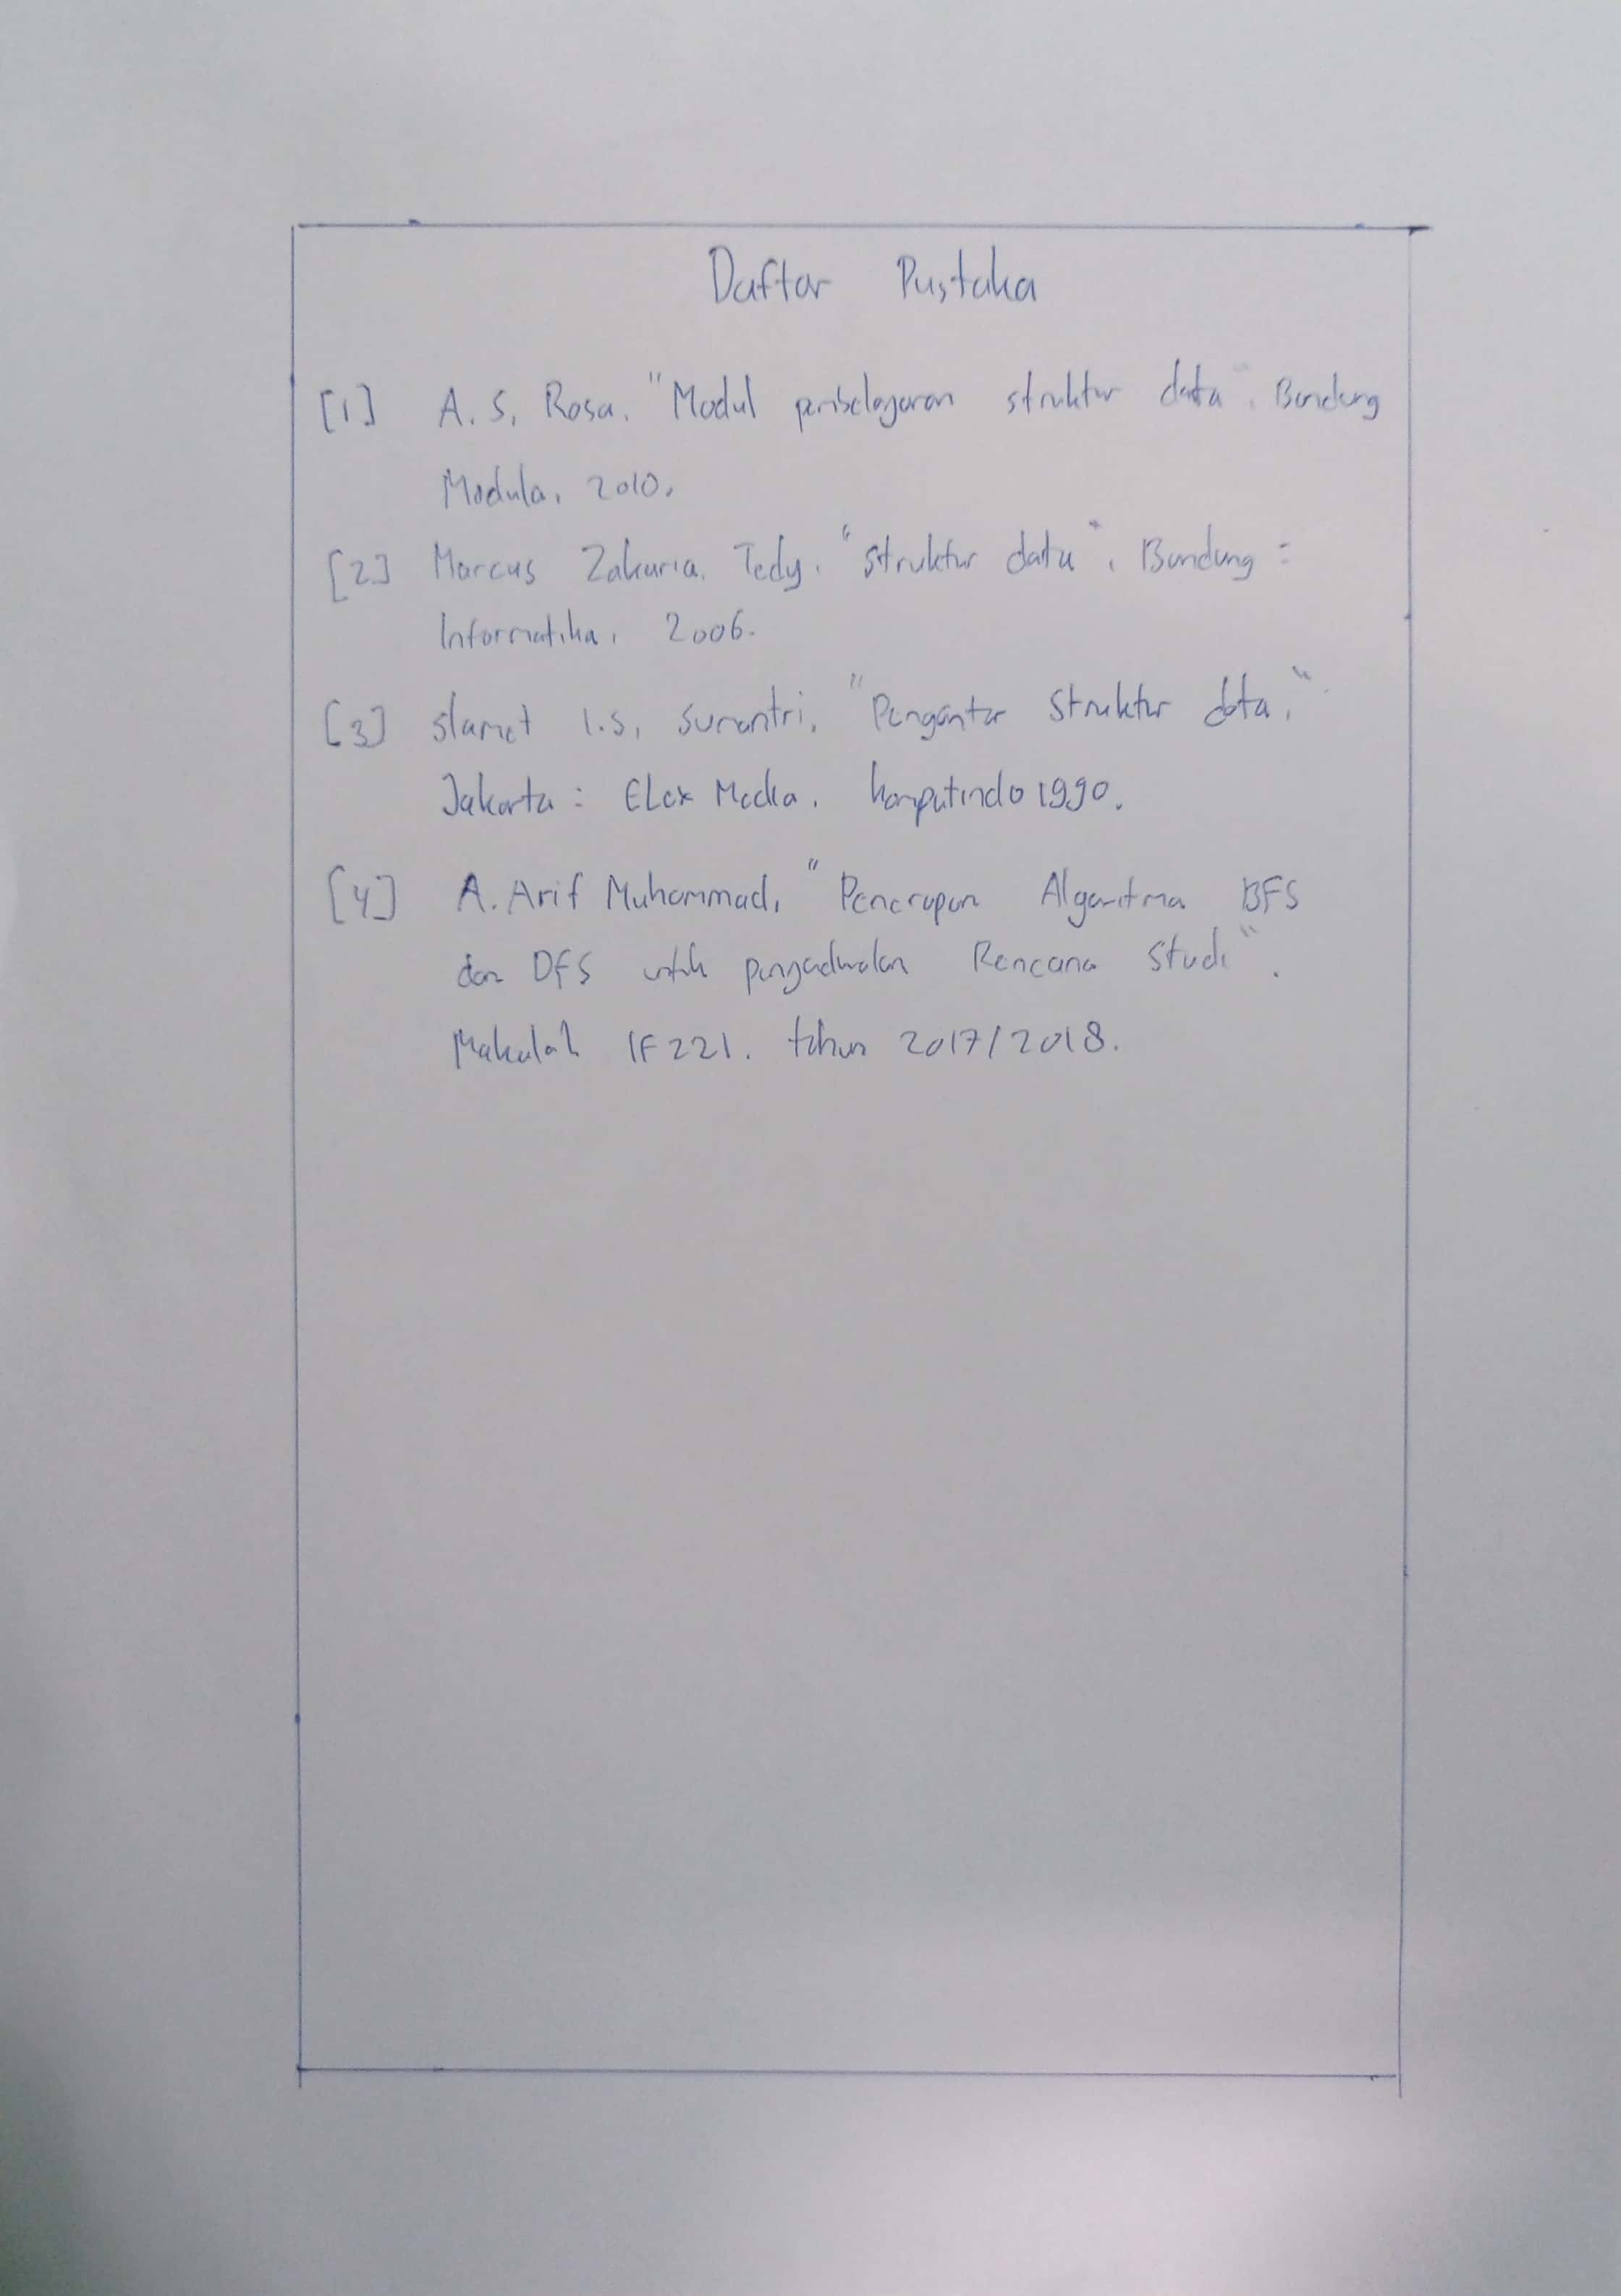 Daftar Pustaka
[1] A. S, Rosa. "Modul pembelajaran struktur data". Bandung
Modula, 2010.
[2] Marcus Zakaria, Tedy. "Struktur data", Bandung :
Informatika, 2006.
[3] Slamet I.S, Sumantri, "Pengantar Struktur data,"
Jakarta : Elex Media. Komputindo 1990.
[4] A. Arif Muhammad, "Penerapan Algoritma BFS
dan DFS untuk pengadwalan Rencana Studi".
Makalah IF221. tahun 2017/2018.